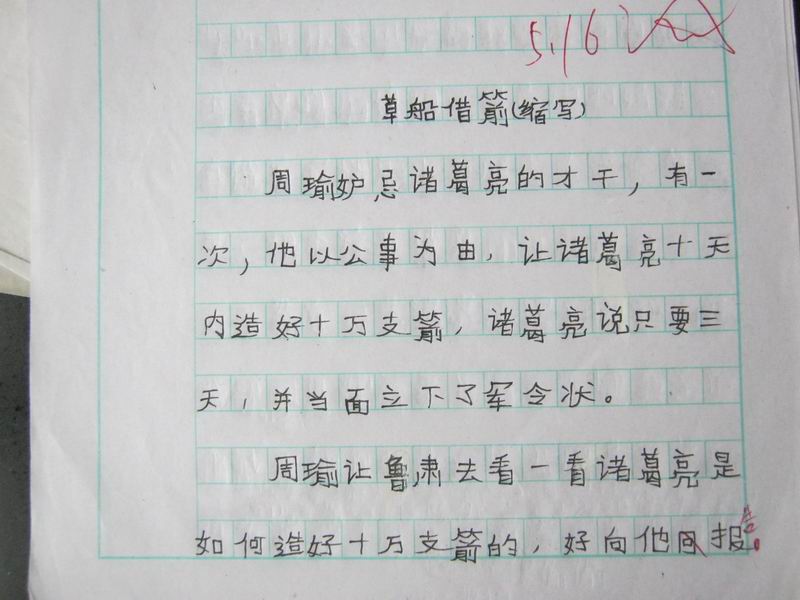 5.16
草船借箭(缩写)
周瑜妒忌诸葛亮的才干，有一
次，他以公事为由，让诸葛亮十天
内造好十万支箭，诸葛亮说只要三
天，并当面立下了军令状。
周瑜让鲁肃去看一看诸葛亮是
如何造好十万支箭的，好向他回报告。